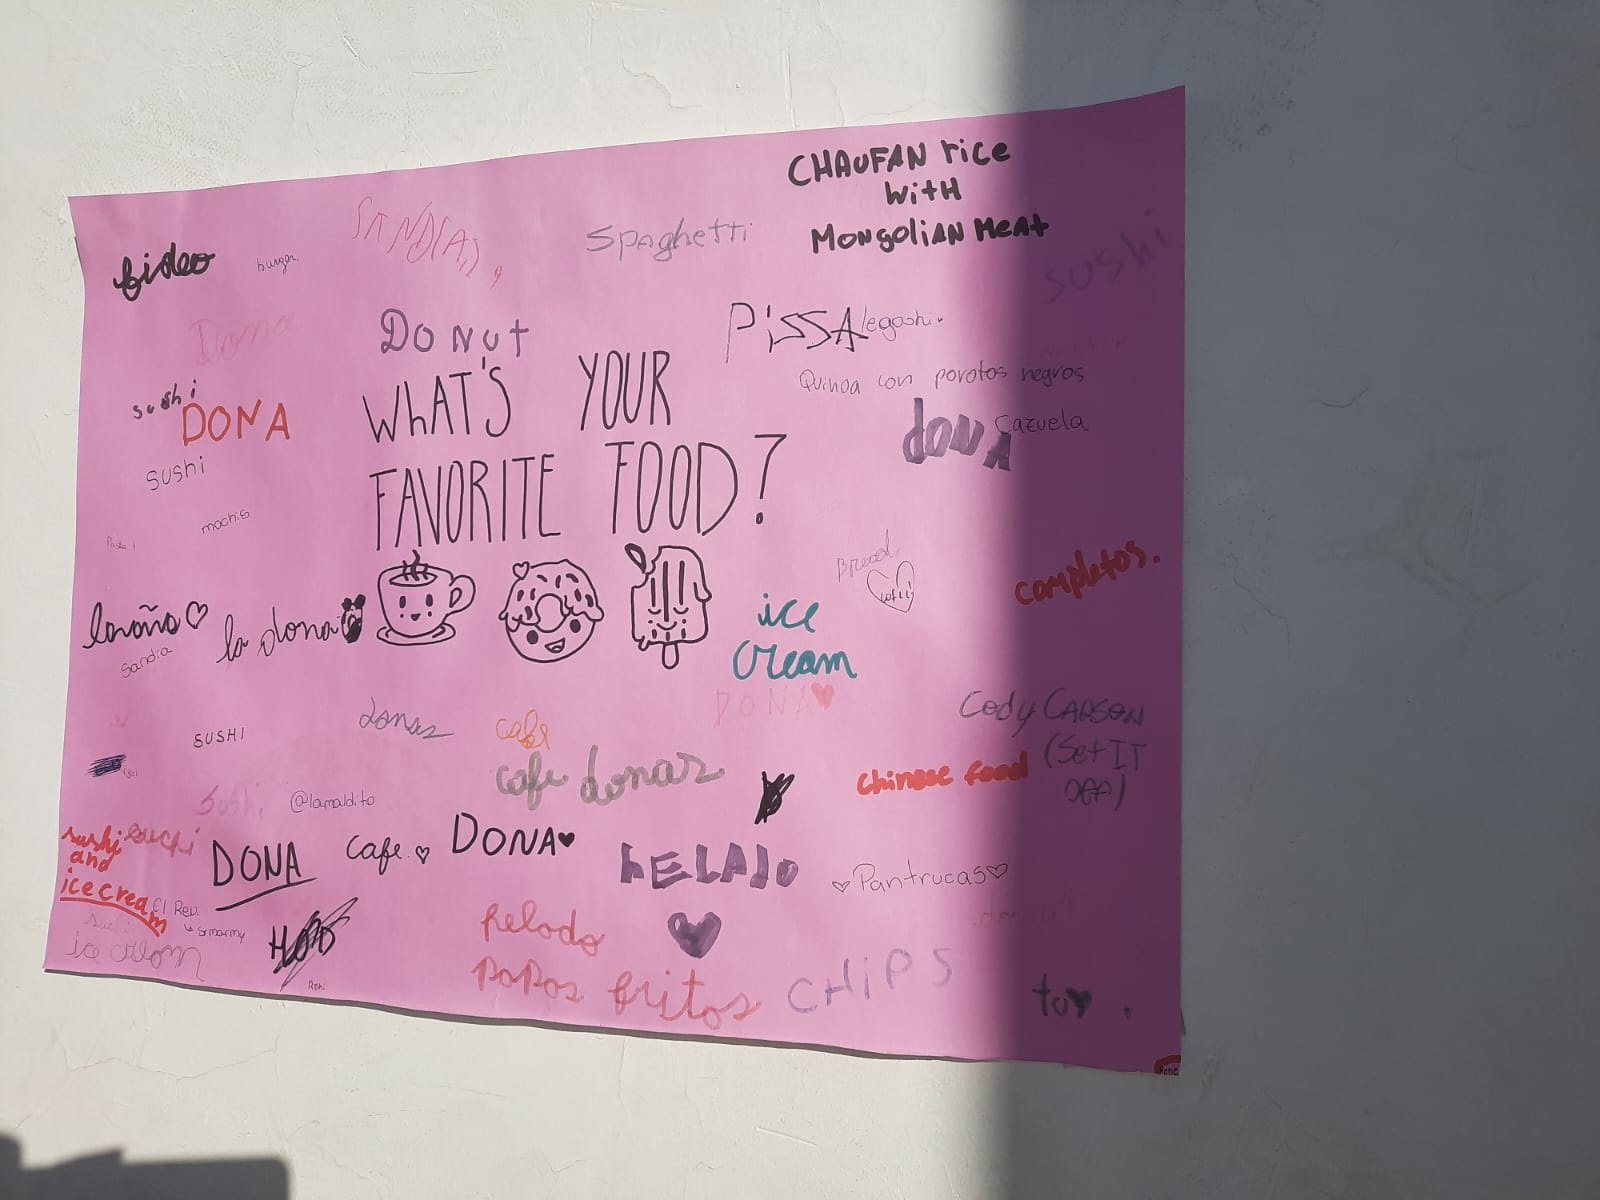 CHAUFAN rice
with
MongoliAN MeAt
SANDIA
Spaghetti
sushi
fideo
burger
Dona
DONUT
PiSSA
legoshi
Quinoa con porotos negros
sushi
DONA
WHAT'S YOUR
FAVORITE FOOD?
dONA
Cazuela
sushi
mochis
Bread
completos.
ice
Cream
la dona
Sandia
DONA
donas
cafe
SUSHI
Cody CARSON
(Set IT
OFF)
cafe donas
chinese food
Sushi
@lamaldito
sushi
and
ice cream
suchi
DONA
Cafe
DONA
hELADO
Pantrucas
El Rey
suchi
ice cream
helado
papas fritas
CHIPS
tu